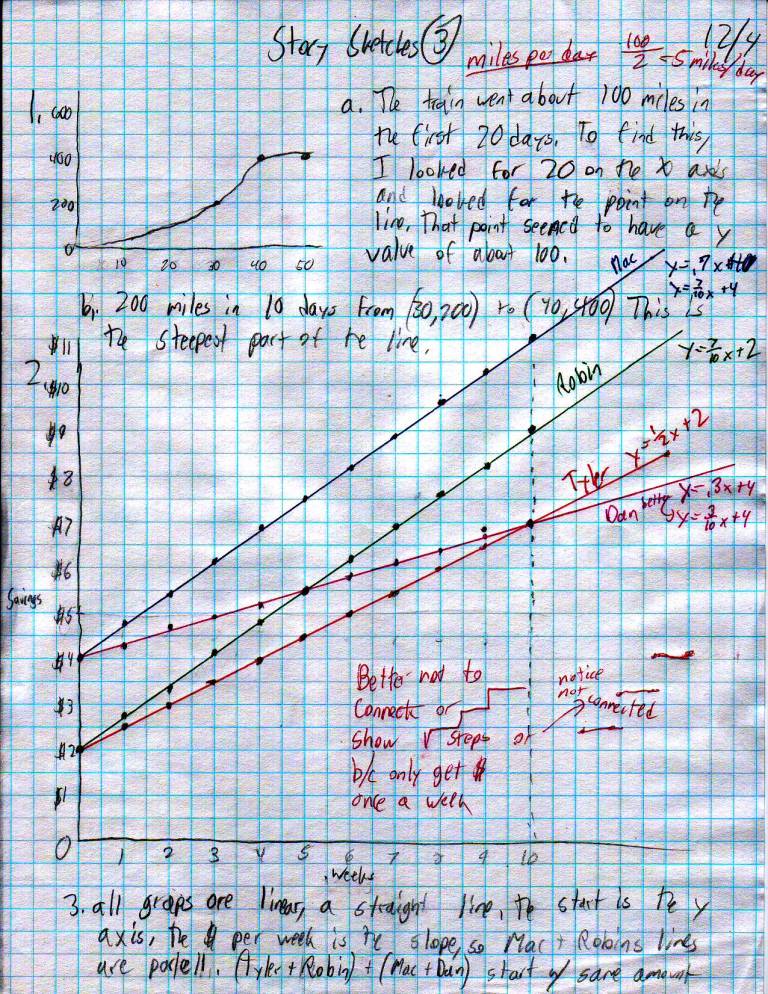 Story Sketches 3
12/4
miles per day 100/2 = 5 miles/day
1.
600
400
200
0
10 20 30 40 50
a. The train went about 100 miles in
the first 20 days. To find this,
I looked for 20 on the X axis
and looked for the point on the
line. That point seemed to have a y
value of about 100.
b. 200 miles in 10 days from (30,200) to (40,400) This is
the steepest part of the line.
2.
Mac
y=.7x
y=7/10x+4
Robin
y=7/10x+2
Tyler y=1/2x+2
Dan better y=.3x+4
y=3/10x+4
$11
$10
$9
$8
$7
$6
$5
$4
$3
$2
$1
0
Savings
1 2 3 4 5 6 7 8 9 10
weeks
Better not to
connect or
show steps or
b/c only get $
once a week
notice
not
connected
3. all graphs are linear, a straight line, the start is the y
axis, the $ per week is the slope, so Mac + Robins lines
are parlell. (Tyler+Robin) + (Mac+Dan) start w/ same amount